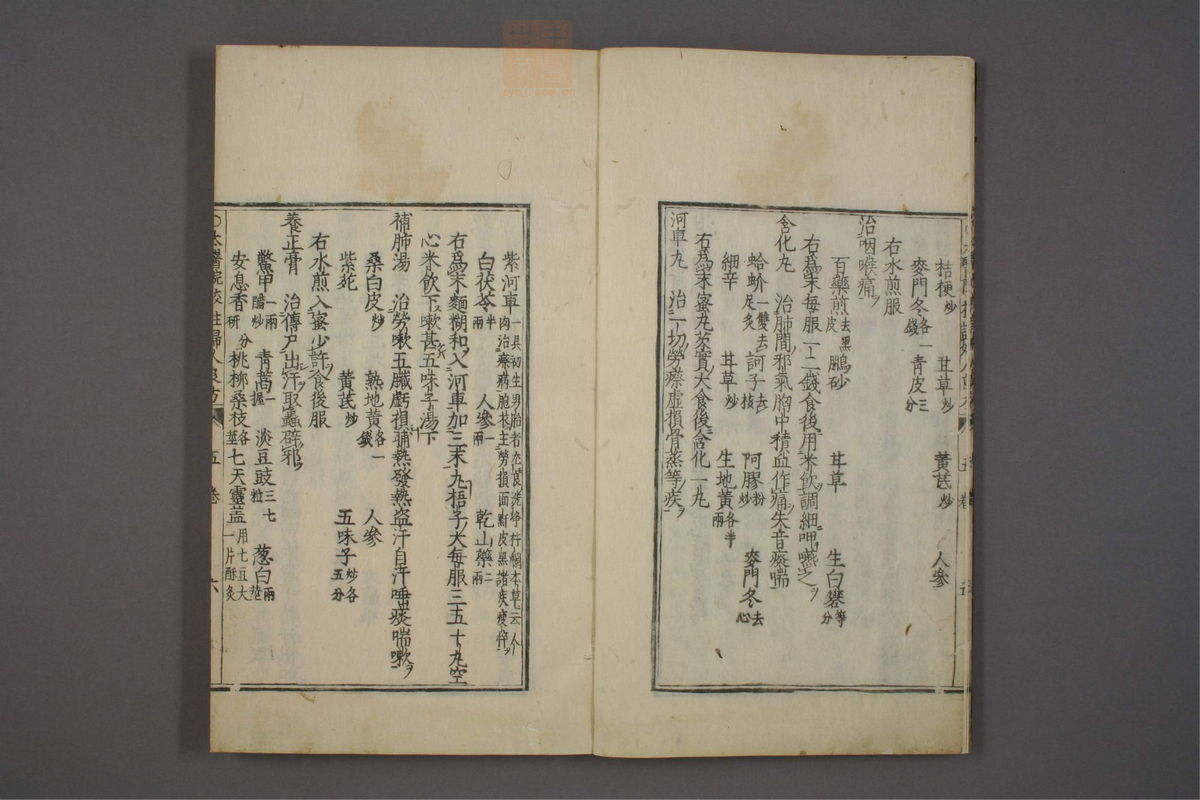 桔梗炒 甘草炒 黄芪炒 人參
麥門冬各一錢 青皮三分
右水煎服
治咽喉痛ヲ
百藥煎去黑皮 鵬砂 甘草 生白礬等分
右爲末每服一二錢食後用米飲調細呷嚥之ヲ
含化丸 治肺間邪氣胸中積血作痛失音痰喘
蛤蚧一雙去足炙 訶子去核 阿膠粉炒 麥門冬去心
細辛 甘草炒 生地黄各半兩
右爲末蜜丸芡實大食後含化一丸
河車丸 治一切勞瘵虚損骨蒸等疾ヲ
紫河車一具初生男胎者尤良洗净杵爛本草云人肉治瘵病胞衣主勞損面䵟皮黑諸疾瘦悴
白茯苓半兩 人參一兩 乾山藥二兩
右爲末麵糊和入河車加三末丸梧子大每服三五十丸空
心米飲下嗽甚五味子湯下
補肺湯 治勞嗽五臟虧損晡熱發熱盗汗自汗唾痰喘嗽ヲ
桑白皮炒 熟地黄各一錢 人參
紫菀 黄芪炒 五味子炒各五分
右水煎入蜜少許食後服
養正膏 治傳尸出汗取蟲辟邪ヲ
鱉甲一兩醋炒 青蒿一握 淡豆豉三七粒 葱白兩莖
安息香研分 桃柳桑枝各莖 七天靈盖用七豆大一片酥炙
○太醫院校註婦人良方 五卷 六